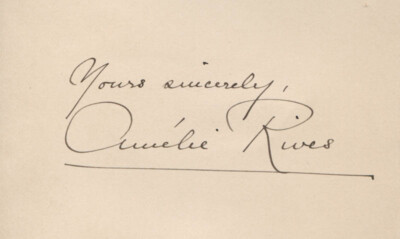 Yours sincerely,
Amélie Rives